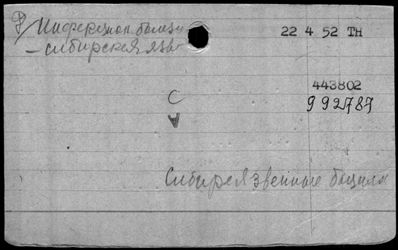 Р/Инфекцион. болезн
— сибирская язв
22 4 52 ТН
443802
992787
С
А
Сибиреязвенные бацилл